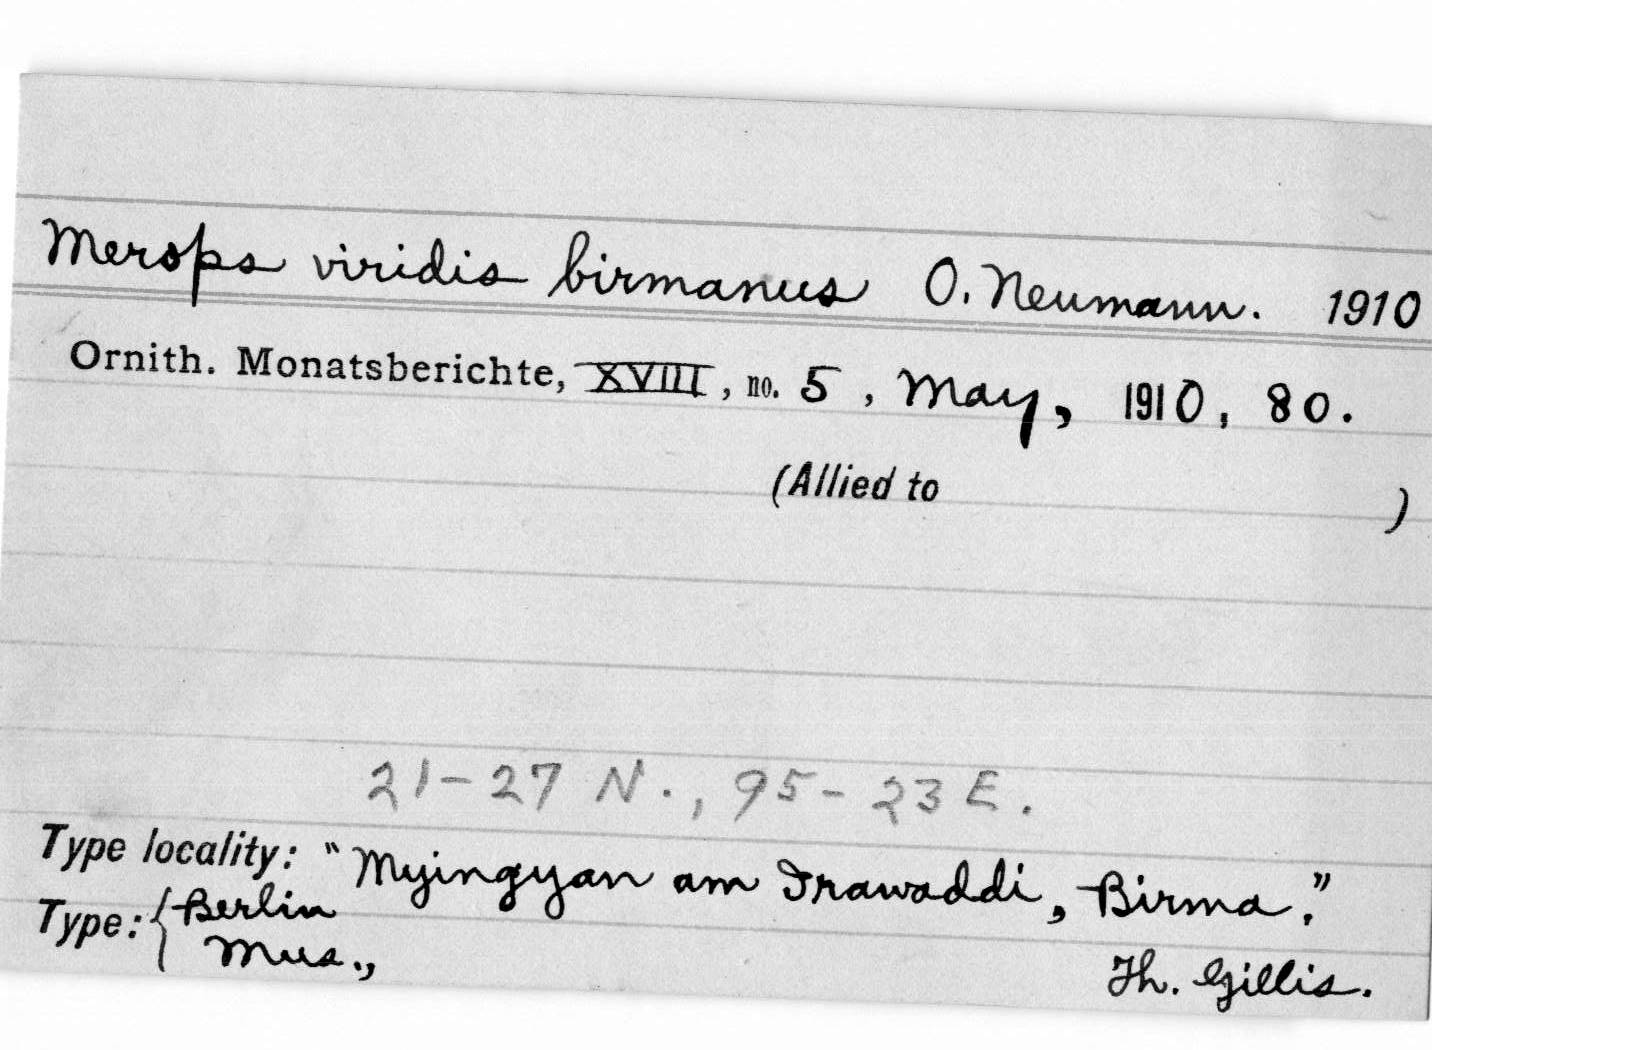 Merops viridis birmanus O. Neumann. 1910
Ornith. Monatsberichte, XVIII, no. 5, May, 1910, 80.
(Allied to )
21-27 N., 95-23 E.
Type locality: "Myingyan am Irawaddi, Birma."
Type: { Berlin
Mus., Th. Gillis.